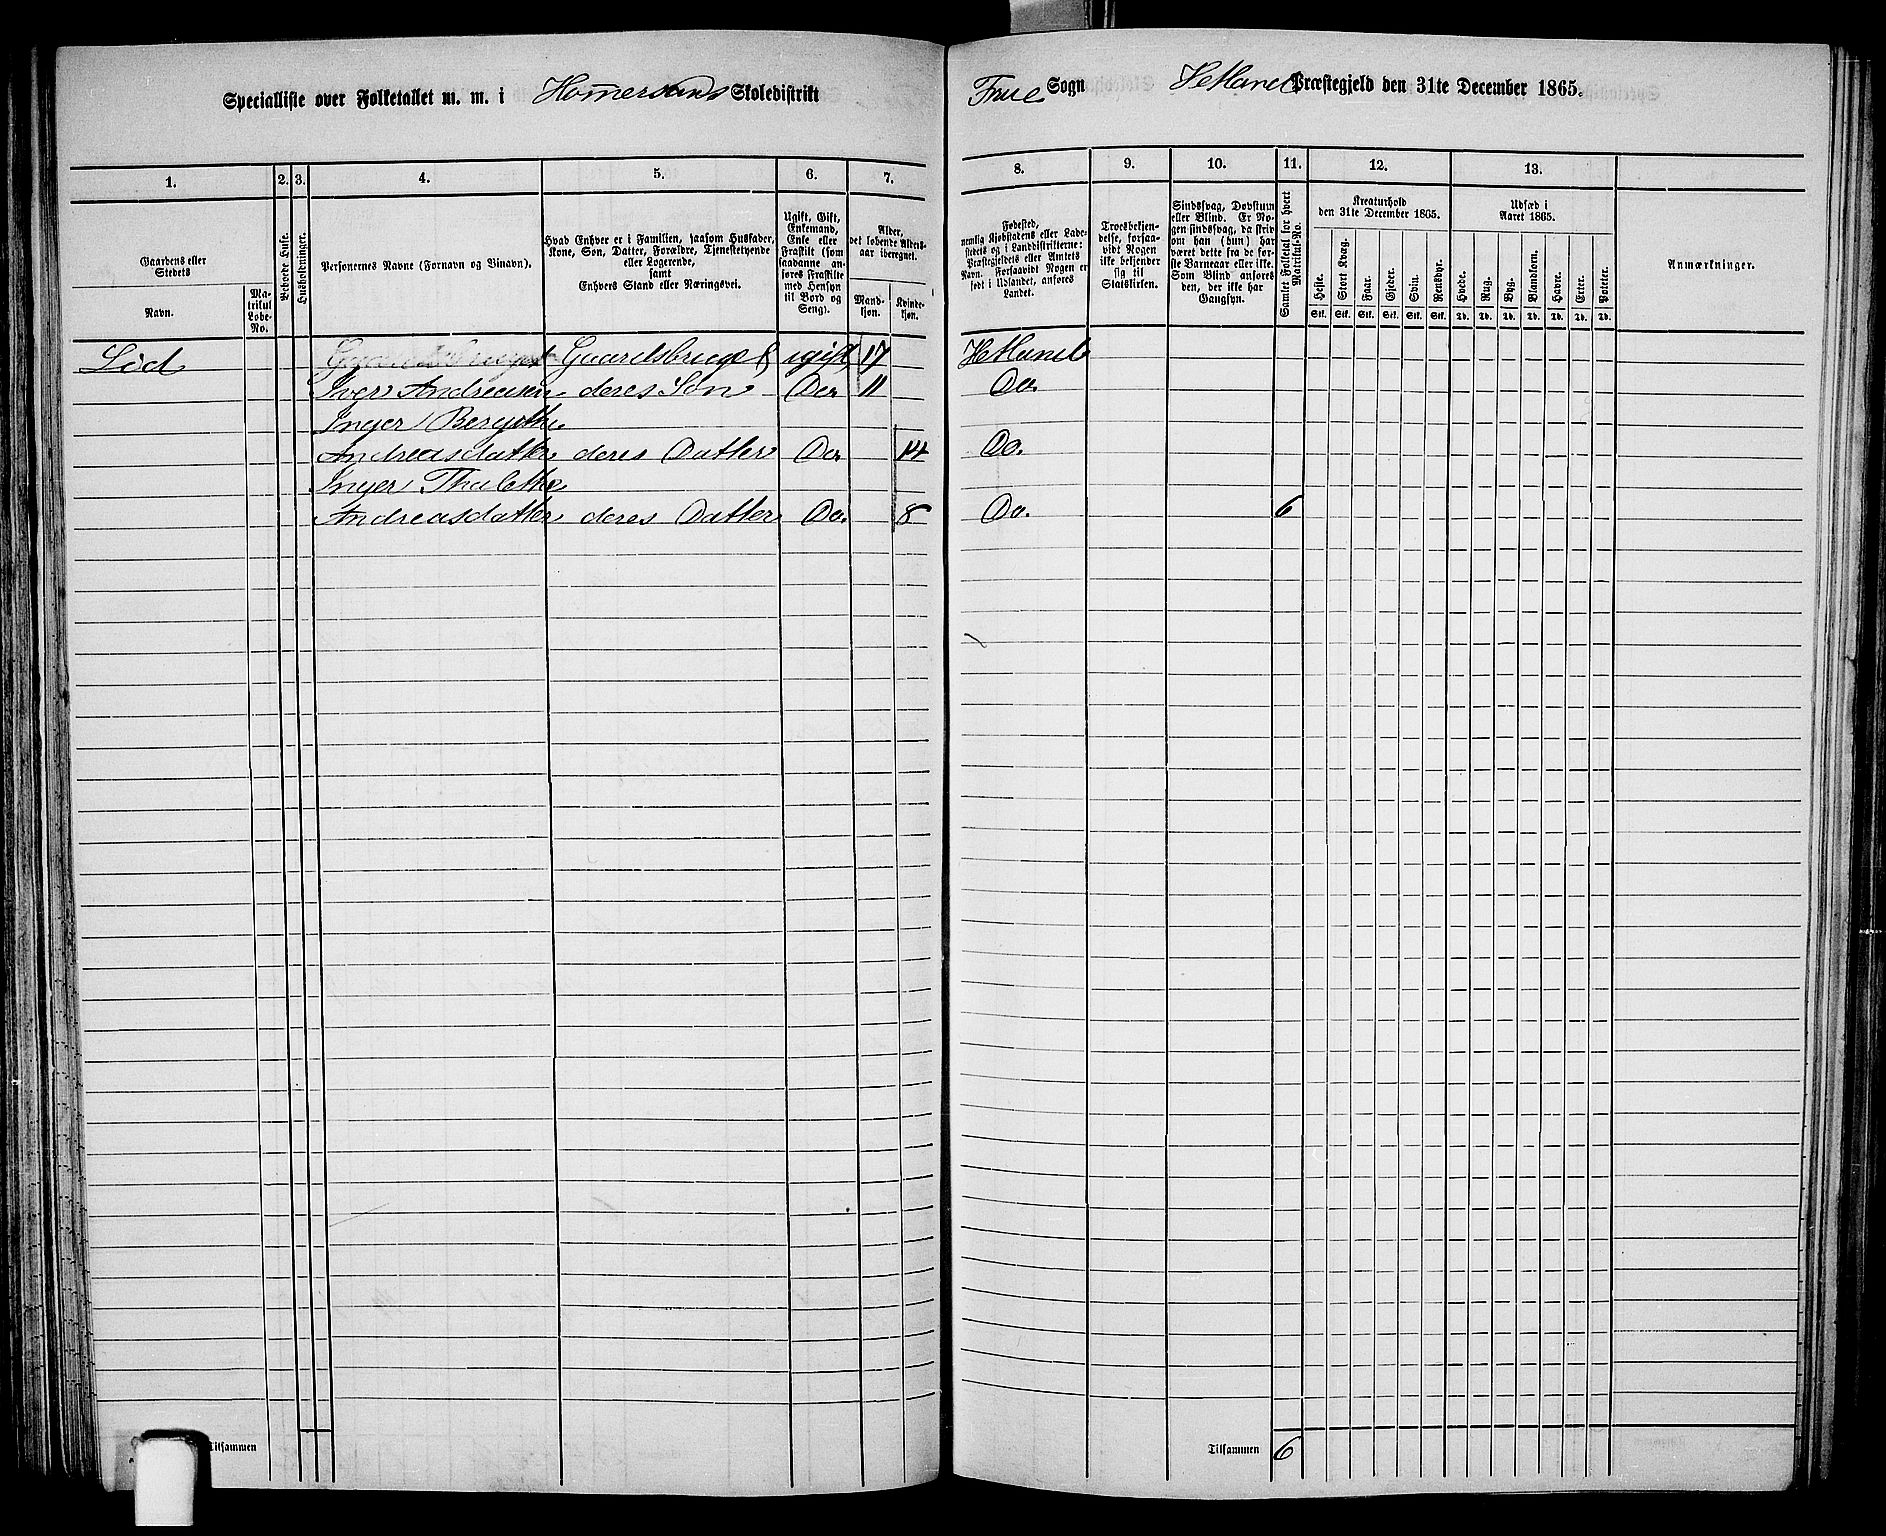 Specialliste over Folketallet m. m. i Homersans Skoledistrikt
Frue Sogn Hetland Præstegjeld den 31te December 1865.
1. 2. 3. 4. 5. 6. 7.
Gaardens eller
Stedets
Navn.
Matrikul Løbe-No.
Beboede Huse.
Husholdninger.
Personernes Navne (Fornavn og Vinavn).
Hvad Enhver er i Familien, saasom Husfader,
Kone, Søn, Datter, Forældre, Tjenestetyende
eller Logerende,
samt
Enhvers Stand eller Næringsvei.
Ugift, Gift,
Enkemand,
Enke eller
Fraskilt (som
saadanne anføres
Fraskilte
med Hensyn
til Bord og
Seng).
Alder,
det løbende Alders-
aar iberegnet.
Mand-
kjøn.
Kvinde-
kjøn.
8. 9. 10. 11. 12. 13.
Fødested,
nemlig Kjøbstadens eller Lade-
stedets og i Landdistrikterne:
Præstegjeldets eller Amtets
Navn. Forsaavidt Nogen er
født i Udlandet, anføres
Landet.
Troesbekjen-
delse, forsaa-
vidt Nogen
ikke bekjender
sig til
Statskirken.
Sindssvag, Døvstum
eller Blind. Er No-
gen sindssvag, da skriv
om han (hun) har
været dette fra de før-
ste Barneaar eller ikke.
Som Blind ansøres
den, der ikke har
Gangsyn.
Samlet Folketal for hvert
Matrikul-No.
Kreaturhold
den 31te December 1865.
Heste. Stort Kvæg. Faar. Gjeder. Sviin. Rensdyr.
Stk. Stk. Stk. Stk. Stk. Stk.
Udsæd i
Aaret 1865.
Hvede. Rug. Byg. Blandkorn. Havre. Erter. Poteter.
Td. Td. Td. Td. Td. Td. Td.
Anmærkninger.
Gaardsbruger ugift 17 Hetland
Iver Andreasen deres Søn Do. 11 Do.
Inger Bergithe
Andreasdatter deres Datter Do. 14 Do.
Inger Thalethe
Andreasdatter deres Datter Do. 8 Do. 6
Tilsammen
Tilsammen 6